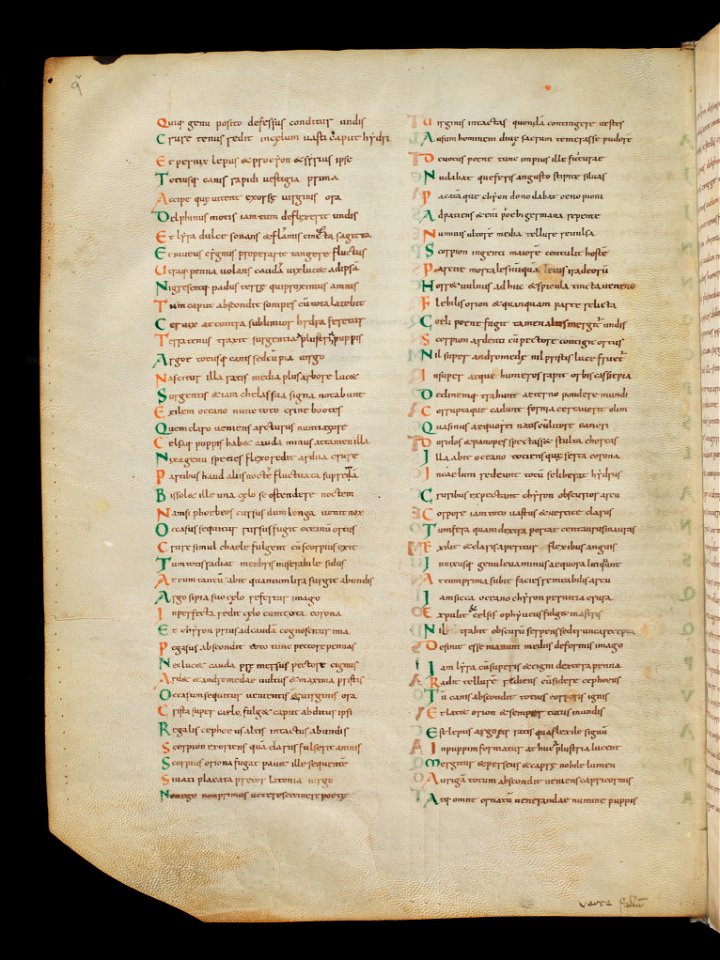 Quiq genu posito defessus conditur undis
Crure tenus redit incęlum uasti caput hydri
Et pernix lepus & procyon & syrius ipse
Totusq; canis rapidi uestigia prima
Accipe quę uitent exorsę uirginis ora
Delphinus motis iam cum deflexerit undis
Et lyra dulce sonans & flāmis cincta sagitta
Et niueus cygnus properat tangere fluctus
Uraq penna uolans caudā uixlucę adipsā
Nigrescitq; padus terrę quiproximus amnis
Tum caput abscondit sonipes cū tota latebit
Ceruix at contra sublimior hydra feretur
Terra tenus traxit surgentia plustri puppis
Argoę totusq; canis sed cū pia uirgo
Nascitur illa ratis media plus arbore luc&
Surgentis & iam chelas sua signa notabunt
Exilem oceano nunc toto crine bootes
Quem claro ueniens arcturus nuntiat ore
Celsaq; puppis hab& cauda minus attamen illa
Nixa genu species flexo redit ardua crure
Partibus haud aliis noctē fluctuat a suprema
Bis soloc ille una cęlo se ostendere noctem
Namsi phoebeos cursus dum longa uenit nox
Occasus sequitur rursus fugit oceanū ortus
Crure simul chaelę fulgent cū scorpius exit
Tum totus radiat membris miserabile sidus
At cum tantū abit quantum lira surgit abundis
Argo sipia suo cęlo refertur imago
Inperfecta redit cęlo cum tota corona
Et chyron prius ad caudā cognoscitur ima
Pegasus abscondit toto tunc pectore pennas
Nec lucet cauda pręmersus pectore cignus
Aroę & andromedae uultus & maxima pristis
Occasum sequitur uitantis & uirginis ora
Crista super caelo fulg& caput abditus ipsi
Regalis cepheos usaltis intactus abundis
Scorpion exoritens quā clarus fulserit amnis
Scorpius oriona fugit pau& ille sequente
Siuati placata precor latonia uirgo
Nonego nonprimus ueteres cecinere poetę
Uirginis intactas quondā contingere uestes
Ausum hominem diuę sacrum temerasse pudore
Deuotus poenę tunc impius ille futurae
Nudabat queferis angusto stipite siluas
Pacata quę chyon dono dabat oenopioni
Ad patiens & eni phoebi germana repente
Numinis ultore media tellure reuulsa
Scorpion ingenti maiore contulit hoste
Parcite mortales niquā leuis ira deorū
Horr& uulnus ad huc & spicula tincta ueneno
Flebilis orion & quanquam parte relicta
Caeli poene fugit tamen altis mergit undis
Scorpion ardenti cū pectore contigit ortus
Nil super andromedę nil pristis luce fruet
Insuper atque humeros rapit orbis cassiepia
Decliuemq; trahunt aeterno pondere mundi
Corruptaque cadunt forma certauerit olim
Qua sinus aequorei nudos ulture cancri
Doridos & panopes spectasse stulta choreas
Illa abit oceano totiens quę serta corona
Incaelum redeunt totū se liberat hydrus
Cruribus expectant chyron obscurior arcu
Corpore iam toto uastus & uertice clarus
Tum fera quam dextra portat centaurus inauras
Exilit & clara aperitur flexibus anguis
Innixus genu leua minus aequora linqunt
Atcum prima subit facies remeabilis arcu
Iam sicca oceano chyron peruncta crura
Expulit & celsis ophyucus fulg& mastris
Nil trabit obscuri serpens sed uncarecepta
Desinit esse manum medius deformis imago
Iam lyra cū superis & cigni dextera penna
Radit tellurē rediens cū sidere cepheos
Tū canis abscondit totus corporis ignis
Et late orion & semper tutus mundis
Est lepus argoq; ratis quas lexile signū
Inpuppim formatur at huc plustria lucent
Mergitur & perseus & caprę nobile lumen
Aurigā totum abscondit ueniens capricornus
Atq; omne ornatū uenerandae numine puppis